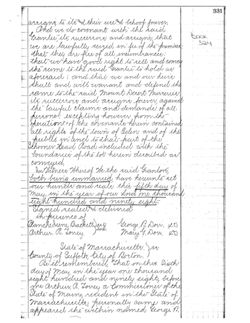 331
assigns to its & their use & behoof forever.
And we do covenant with the said
Grantee its successors and assigns, that
we are lawfully seized in fee of the premises
that they are free of all incumbrances
that we have good right to sell and convey
the same to the said Grantee to hold as
aforesaid: and that we and our heirs
shall and will warrant and defend the
same to the said Mount Desert Nurseries
its successors and assigns forever against
the lawful claims and demands of all
persons excepting however from the
covenants herein contained
all rights of the town of Eden and of the
public in and to that part of the
Road included with the
boundaries of the lot herein described as
conveyed.
In Witness Whereof we the said Grantors
both being unmarried have hereunto set
our hands and seals this fifth day of
May in the year of our Lord one thousand
eight hundred and ninety eight.
Signed sealed & delivered
in presence of
George N. Dorr
Arthur A. Mary G. Dorr
State of Massachusetts
County of Suffolk City of Boston
Be it remembered that on this sixth
day of May in the year one thousand
eight hundred and ninety eight before
me Arthur A. a Commissioner of the
State of Maine resident in the State of
Massachusetts personally came and
appeared the within named George N.